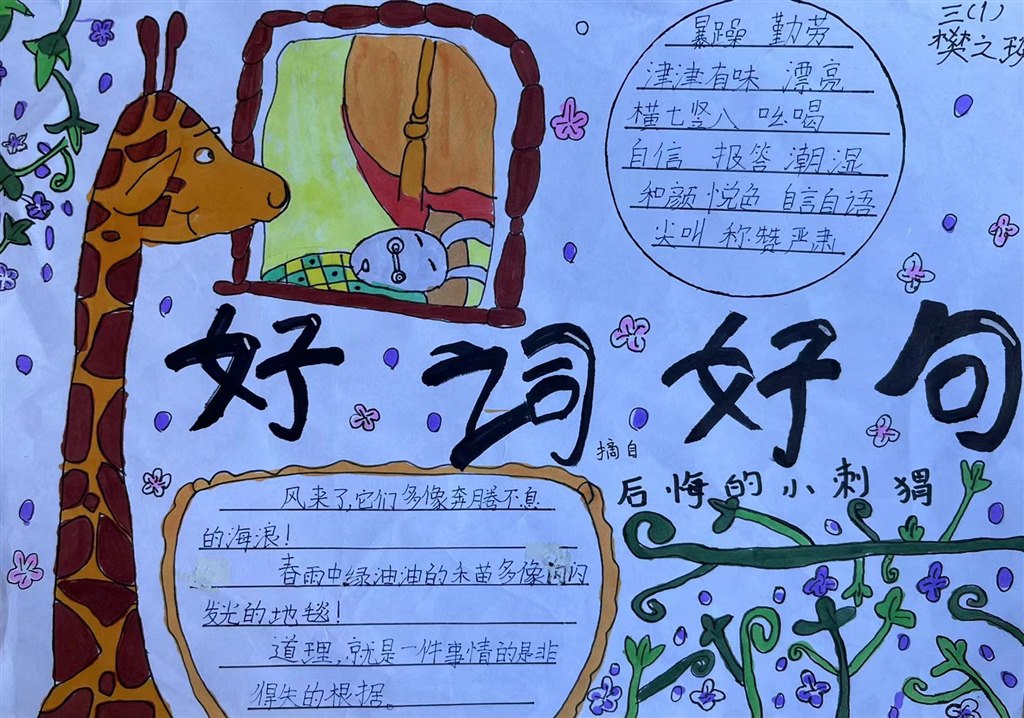 三(1)
樊之
暴躁 勤劳
津津有味 漂亮
横七竖八 吆喝
自信 报答 潮湿
和颜悦色 自言自语
尖叫 称赞 严肃
好词好句
摘自
后悔的小刺猬
风来了,它们多像奔腾不息
的海浪!
春雨中绿油油的禾苗多像闪闪
发光的地毯!
道理,就是一件事情的是非
得失的根据。